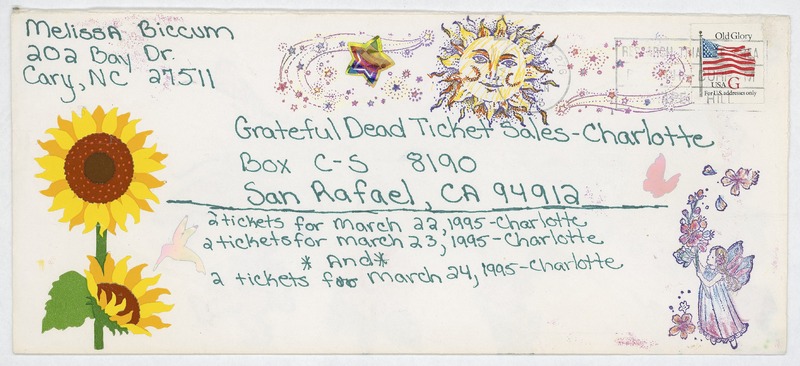 Melissa Biccum
202 Bay Dr.
Cary, NC 27511
Old Glory
USA G
For U.S. addresses only
Grateful Dead Ticket Sales-Charlotte
Box C-S 8190
San Rafael, CA 94912
2 tickets for March 22, 1995-Charlotte
2 tickets for March 23, 1995-Charlotte
* And *
2 tickets for March 24, 1995-Charlotte